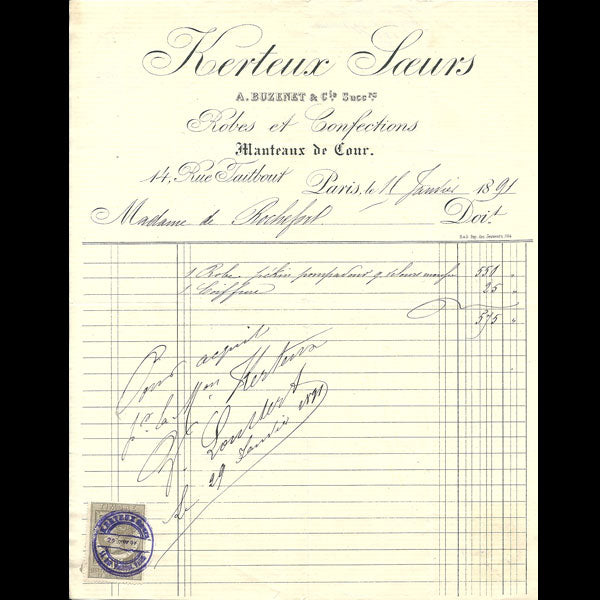 Kerteux Sœurs
A. BUZENET & Cie Succrs
Robes et Confections
Manteaux de Cour.
14, Rue Taitbout Paris, le 16 Janvier 1891
Madame de Rochefort Doit
1 Robe pékin pompadour 550 "
1 Coiffure 25 "
575 "
Pour acquit
pr la Mon Kerteux
Le 29 Janvier 1891
KERTEUX Sœurs